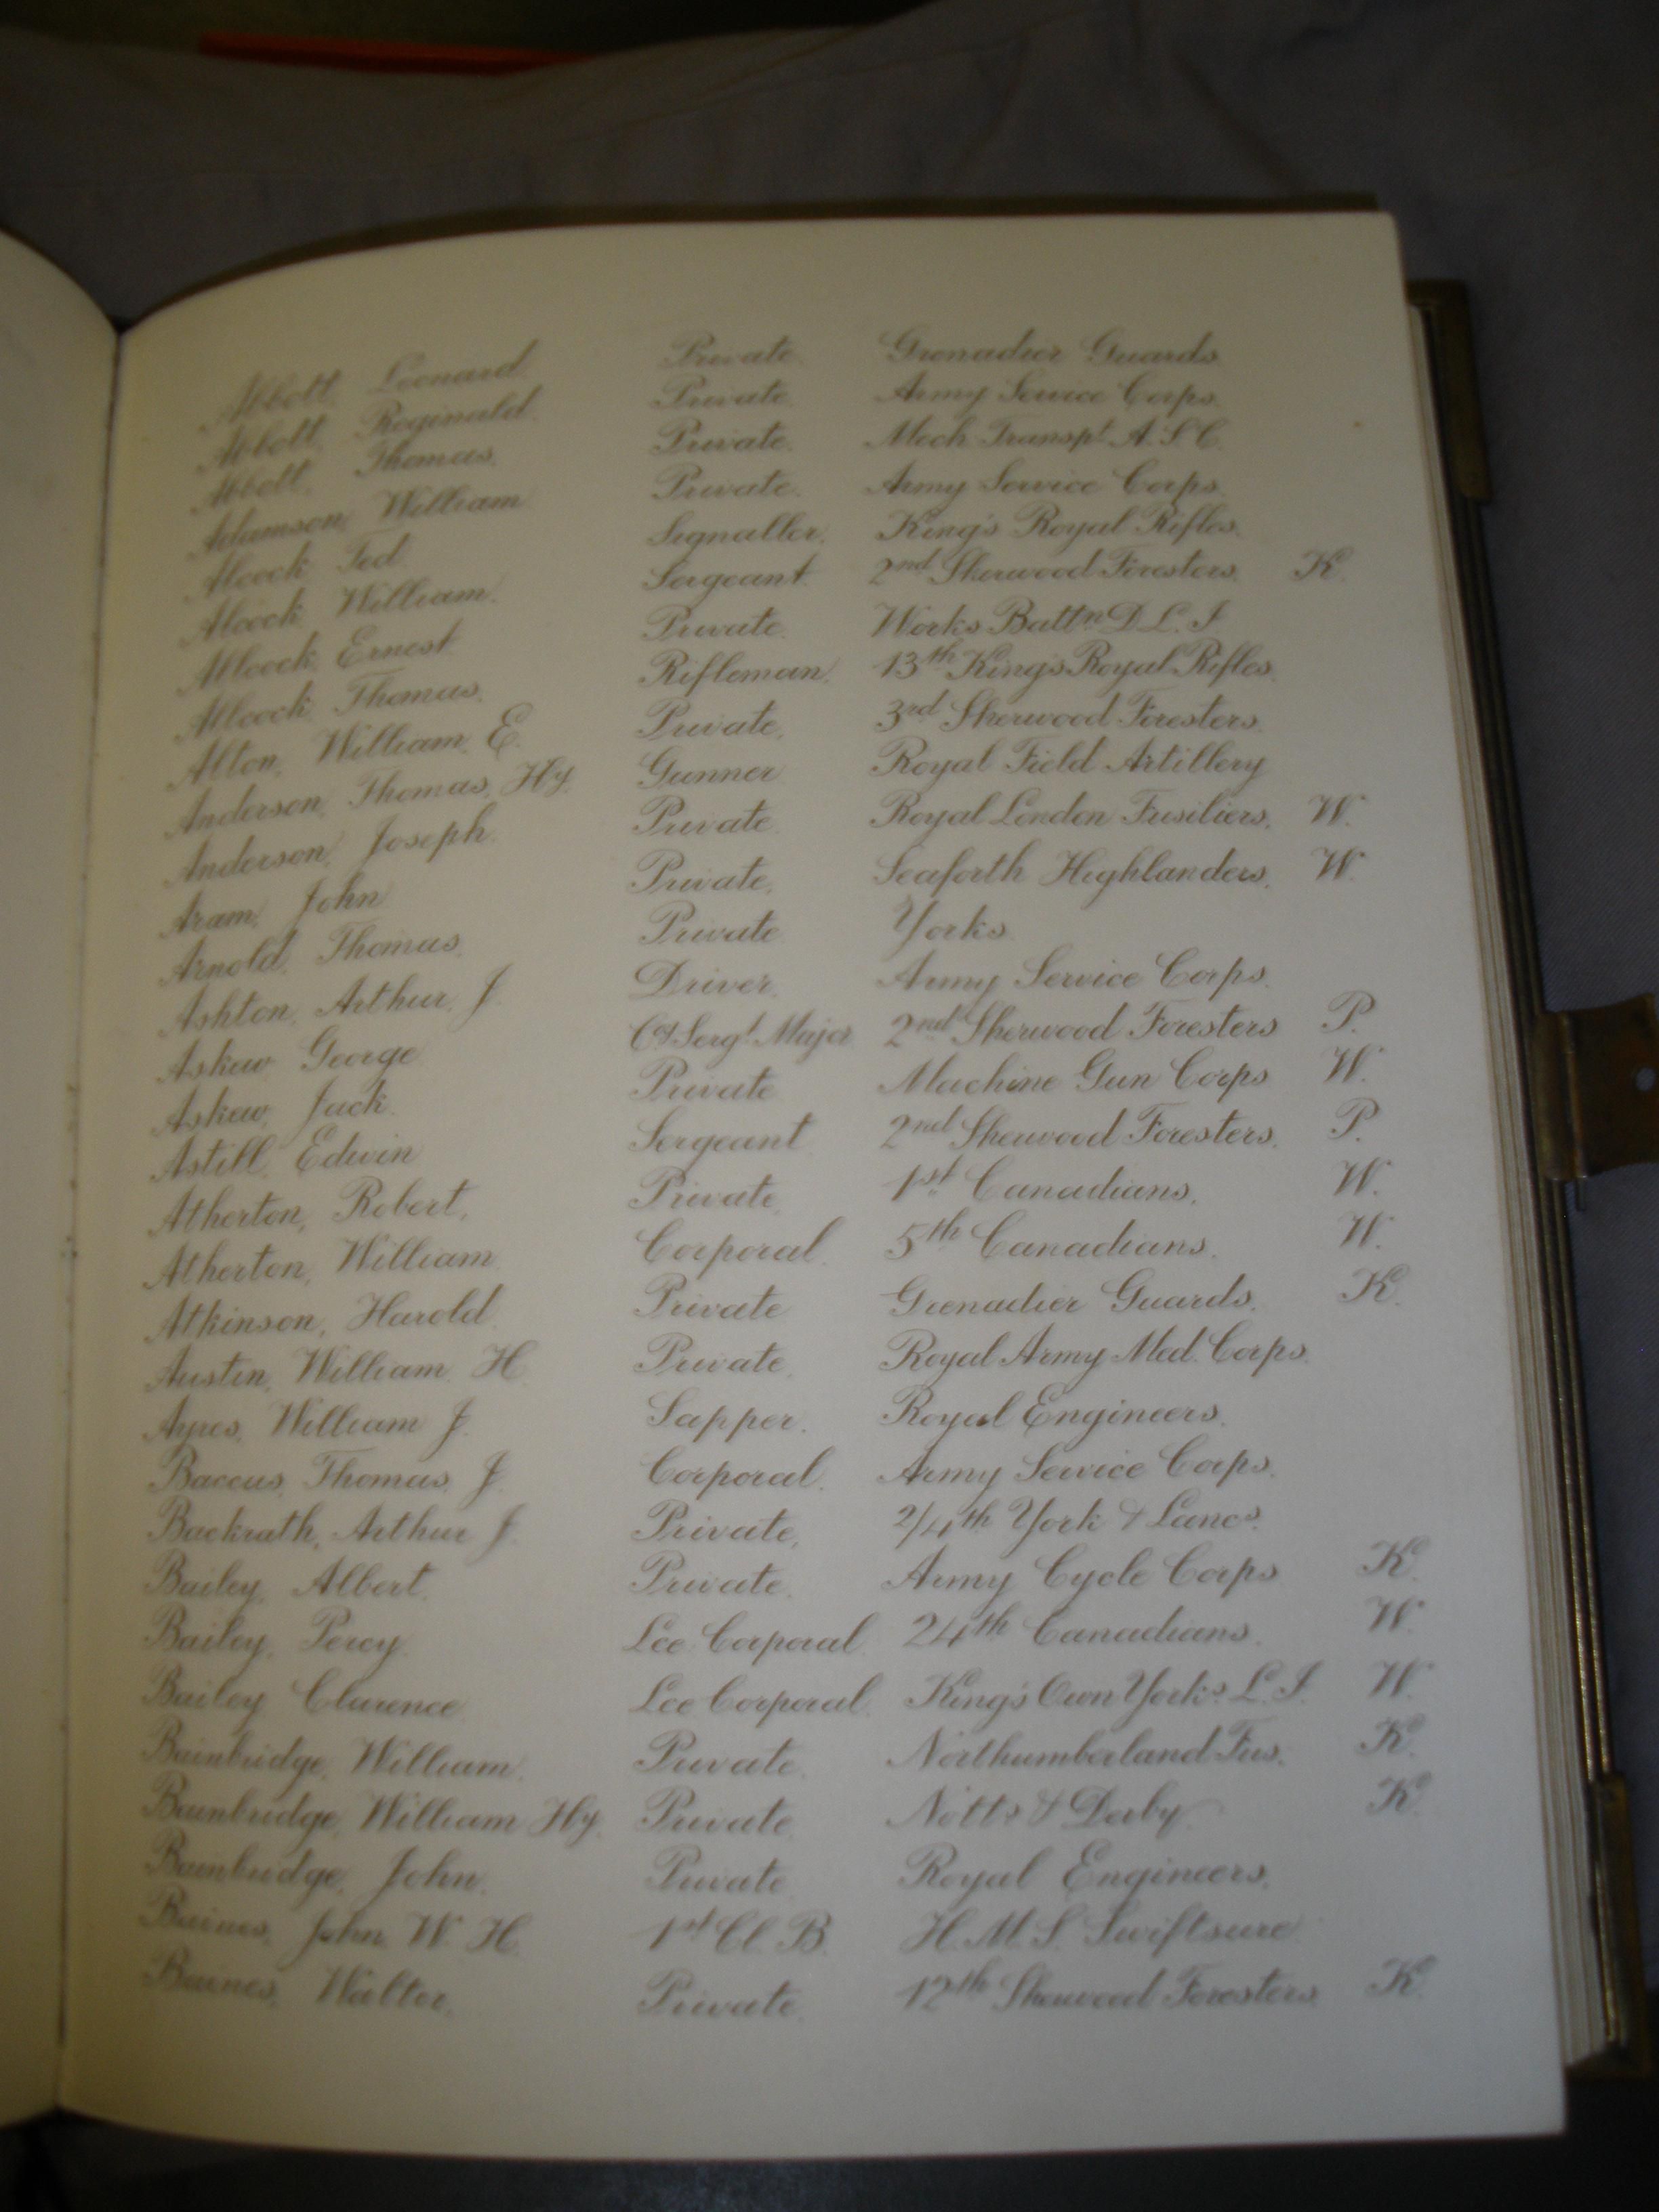 Abbott, Leonard Private. Grenadier Guards.
Abbott, Reginald. Private. Army Service Corps.
Abbott, Thomas. Private. Mech. Transpt. A.S.C.
Adamson, William Private. Army Service Corps.
Alcock Ted Signaller. King's Royal Rifles.
Alcock William. Sergeant. 2nd Sherwood Foresters. K.
Allcock, Ernest Private. Works Battn D.L.I
Allcock Thomas. Rifleman. 13th King's Royal Rifles.
Alton, William E. Private. 3rd Sherwood Foresters.
Anderson, Thomas, Hy. Gunner Royal Field Artillery
Anderson, Joseph. Private. Royal London Fusiliers. W.
Aram, John Private. Seaforth Highlanders. W.
Arnold, Thomas. Private Yorks.
Ashton, Arthur. J. Driver. Army Service Corps.
Askew George Cy. Sergt. Major 2nd Sherwood Foresters P.
Askew, Jack. Private Machine Gun Corps W.
Astill, Edwin Sergeant 2nd Sherwood Foresters. P.
Atherton, Robert. Private. 1st Canadians. W.
Atherton, William. Corporal. 5th Canadians. W.
Atkinson, Harold Private Grenadier Guards. K.
Austin, William. H. Private. Royal Army Med. Corps.
Ayres, William J. Sapper. Royal Engineers.
Baccus, Thomas. J. Corporal. Army Service Corps.
Backrath, Arthur J. Private. 2/4th York & Lancs.
Bailey, Albert. Private. Army Cycle Corps K.
Bailey, Percy. Lce Corporal 24th Canadians. W.
Bailey Clarence Lce Corporal. King's Own Yorks. L.I. W.
Bainbridge, William. Private. Northumberland Fus. K.
Bainbridge, William Hy. Private Notts & Derby K.
Bainbridge, John. Private Royal Engineers.
Baines, John W. H. 1st Cl. B. H.M.S. Swiftsure
Baines, Walter. Private. 12th Sherwood Foresters. K.